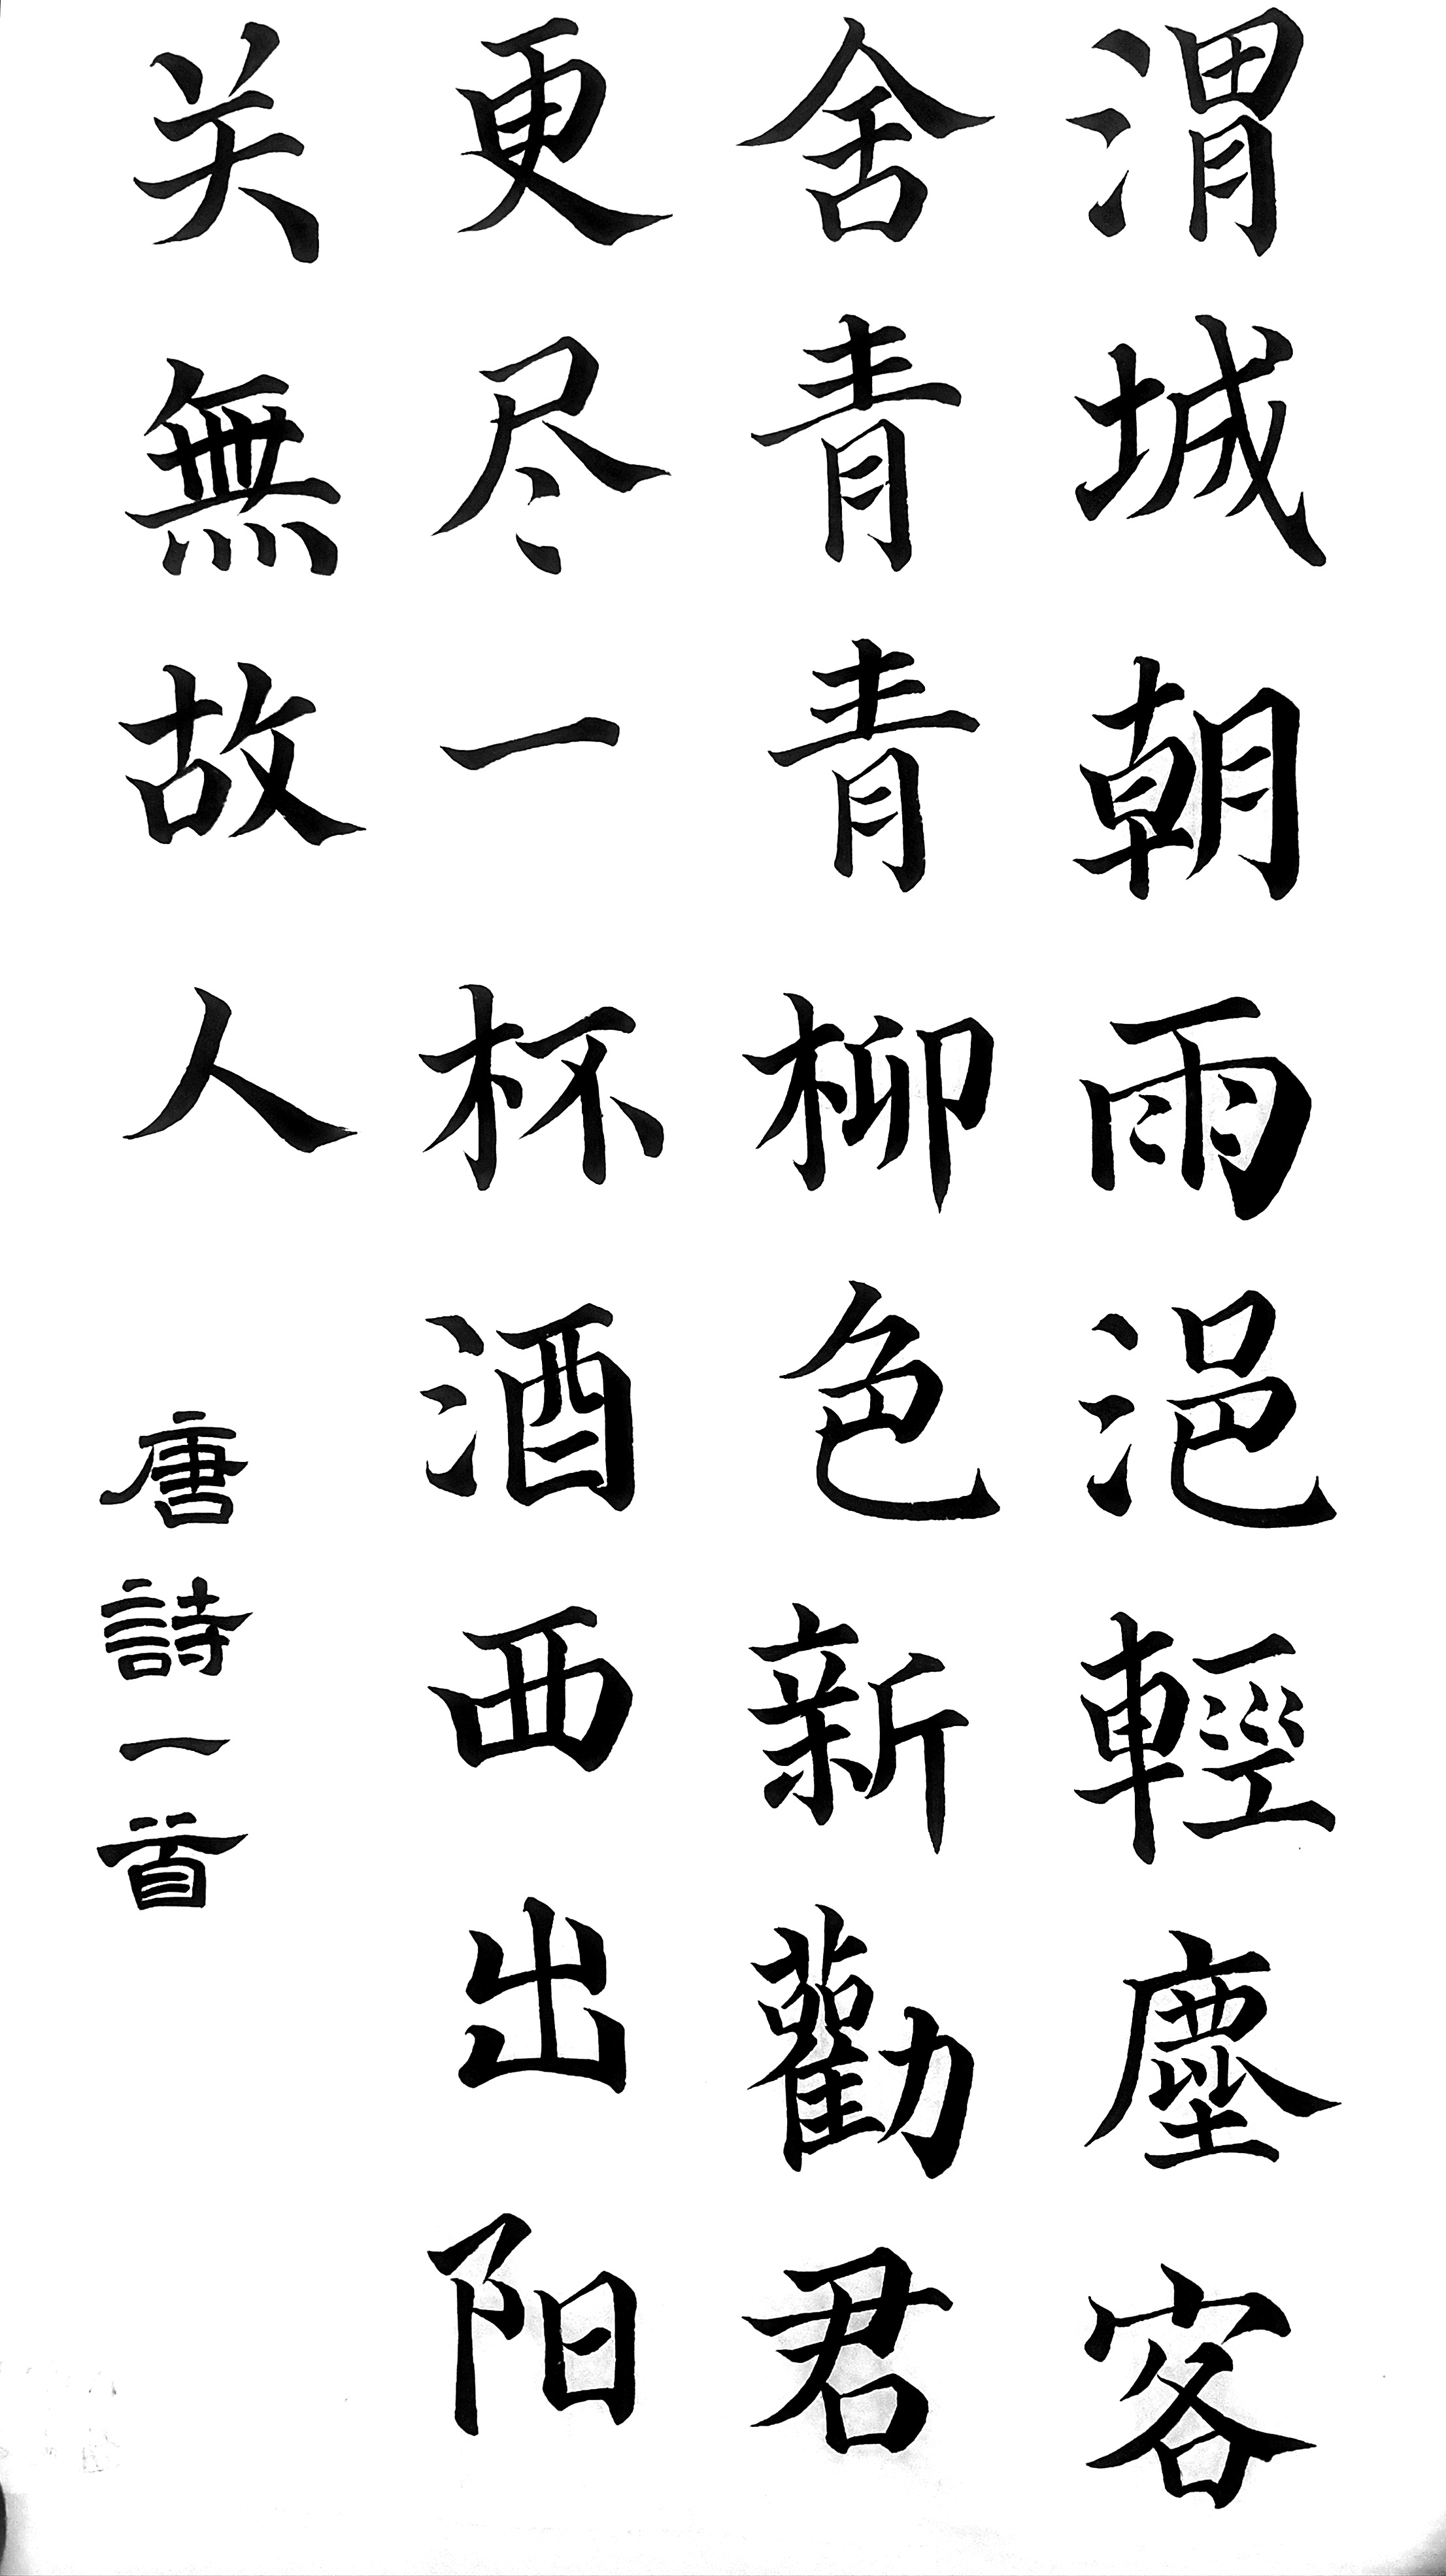 渭城朝雨浥輕塵客
舍青青柳色新勸君
更尽一杯酒西出阳
关無故人
唐詩一首